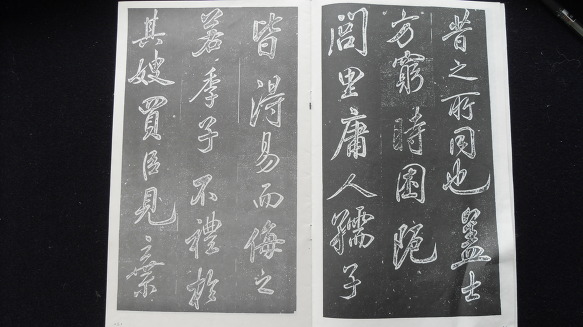 昔之所同也蓋士
方窮時困阨
閭里庸人孺子
皆得易而侮之
若季子不禮於
其嫂買臣見棄